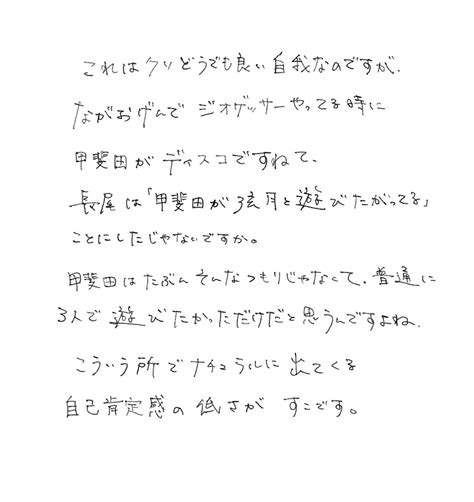 これはクソどうでも良い自我なのですが、
ながおげんで ジオゲッサーやってる時に
甲斐田がディスコですねて、
長尾は「甲斐田が弦月と遊びたがってる」
ことにしたじゃないですか。
甲斐田はたぶんそんなつもりじゃなくて、普通に
3人で遊びたかっただけだと思うんですよね、
こういう所でナチュラルに出てくる
自己肯定感の低さが すこです。